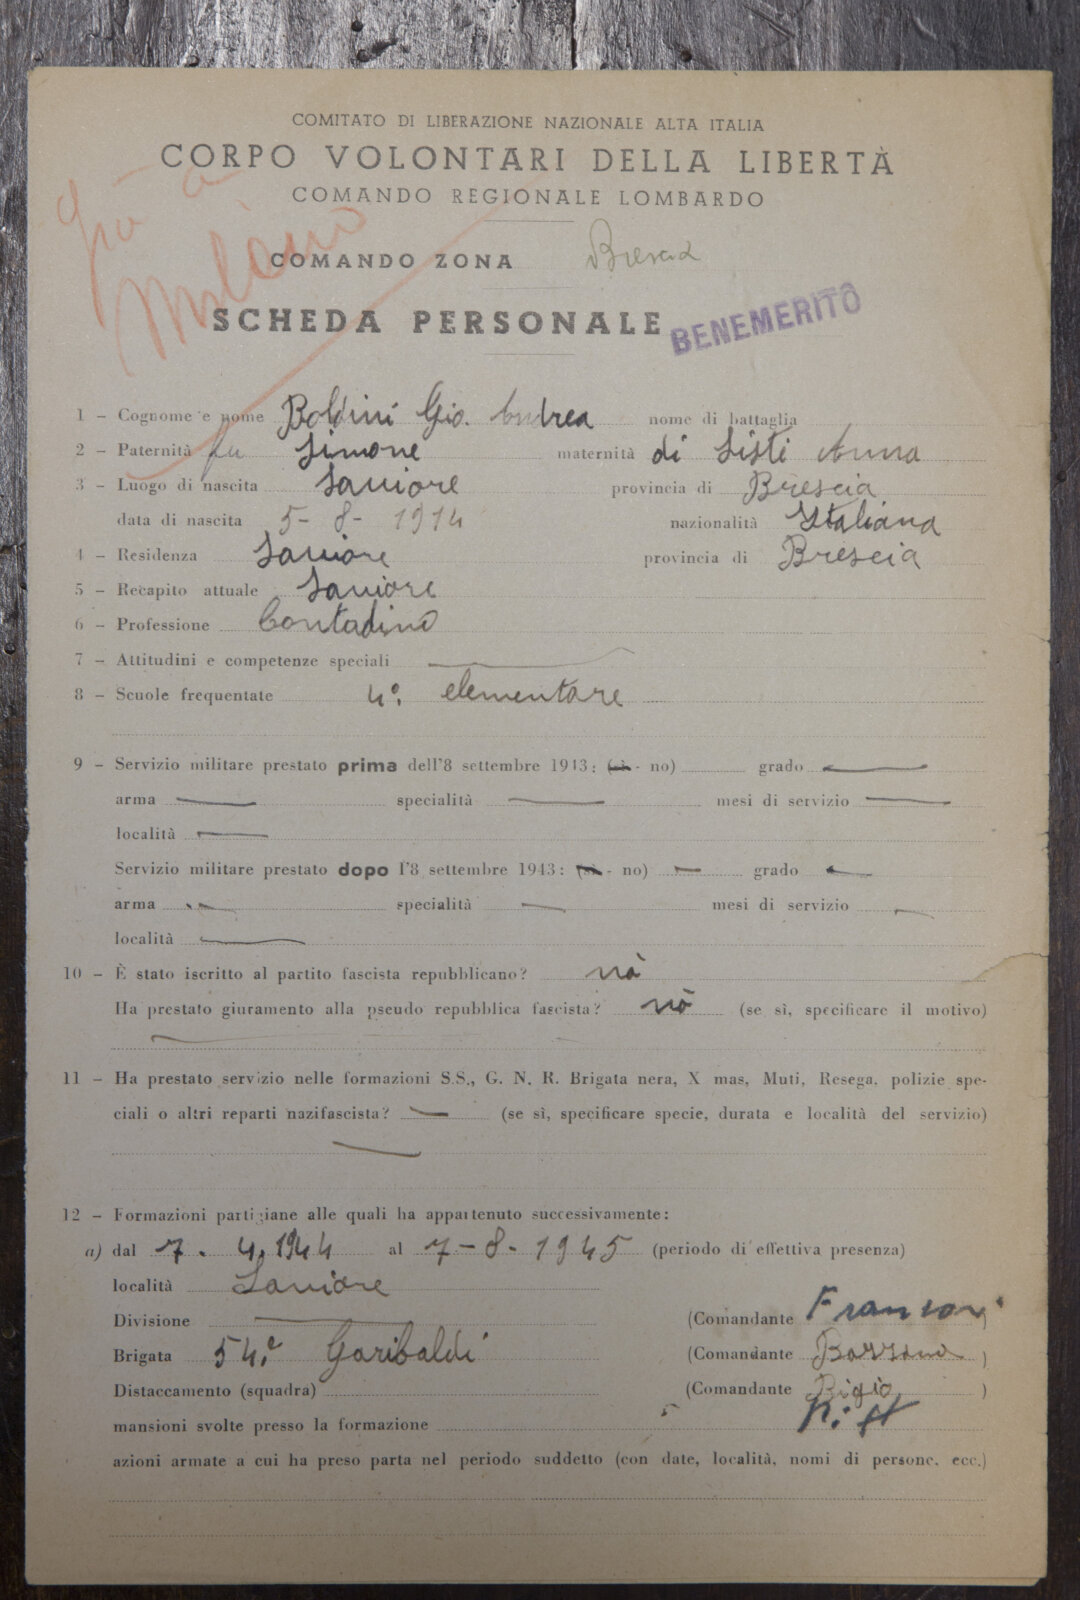 COMITATO DI LIBERAZIONE NAZIONALE ALTA ITALIA
CORPO VOLONTARI DELLA LIBERTÀ
COMANDO REGIONALE LOMBARDO
già a
Milano
COMANDO ZONA Brescia
SCHEDA PERSONALE BENEMERITO
1 – Cognome e nome Boldini Gio. Andrea nome di battaglia
2 – Paternità fu Simone maternità di Sisti Anna
3 – Luogo di nascita Saviore provincia di Brescia
data di nascita 5-8-1914 nazionalità Italiana
4 – Residenza Saviore provincia di Brescia
5 – Recapito attuale Saviore
6 – Professione Contadino
7 – Attitudini e competenze speciali
8 – Scuole frequentate 4° elementare
9 – Servizio militare prestato prima dell'8 settembre 1943: (sì - no) grado
arma specialità mesi di servizio
località
Servizio militare prestato dopo l'8 settembre 1943: (sì - no) grado
arma specialità mesi di servizio
località
10 – È stato iscritto al partito fascista repubblicano? nò
Ha prestato giuramento alla pseudo repubblica fascista? nò (se sì, specificare il motivo)
11 – Ha prestato servizio nelle formazioni S.S., G. N. R. Brigata nera, X mas, Muti, Resega, polizie spe-
ciali o altri reparti nazifascista? (se sì, specificare specie, durata e località del servizio)
12 – Formazioni partigiane alle quali ha appartenuto successivamente:
a) dal 7. 4. 1944 al 7-8-1945 (periodo di effettiva presenza)
località Saviore
Divisione (Comandante
Brigata 54.ª Garibaldi (Comandante )
Distaccamento (squadra) (Comandante Bigio )
mansioni svolte presso la formazione
azioni armate a cui ha preso parta nel periodo suddetto (con date, località, nomi di persone, ecc.)